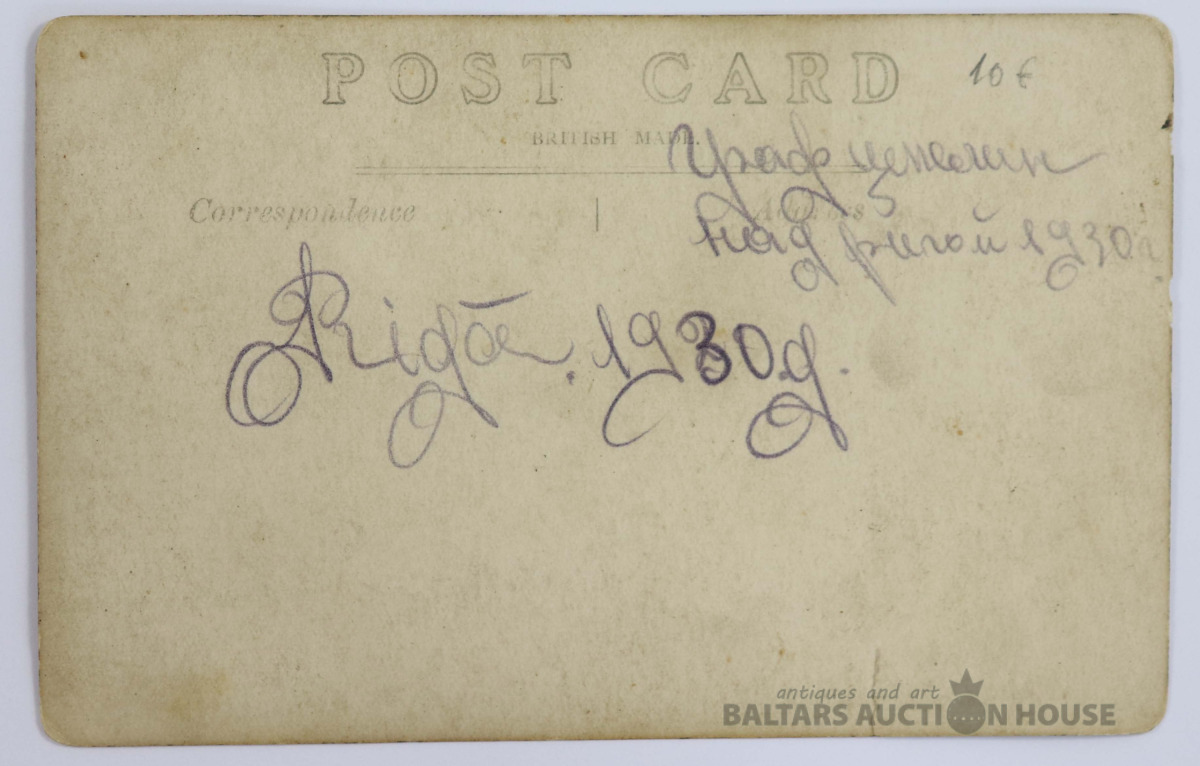 POST CARD 10 €
BRITISH MADE.
Граф цепелин
Correspondence Address
над ригой 1930 г
Rīgā. 1930 g.
antiques and art
BALTARS AUCTION HOUSE